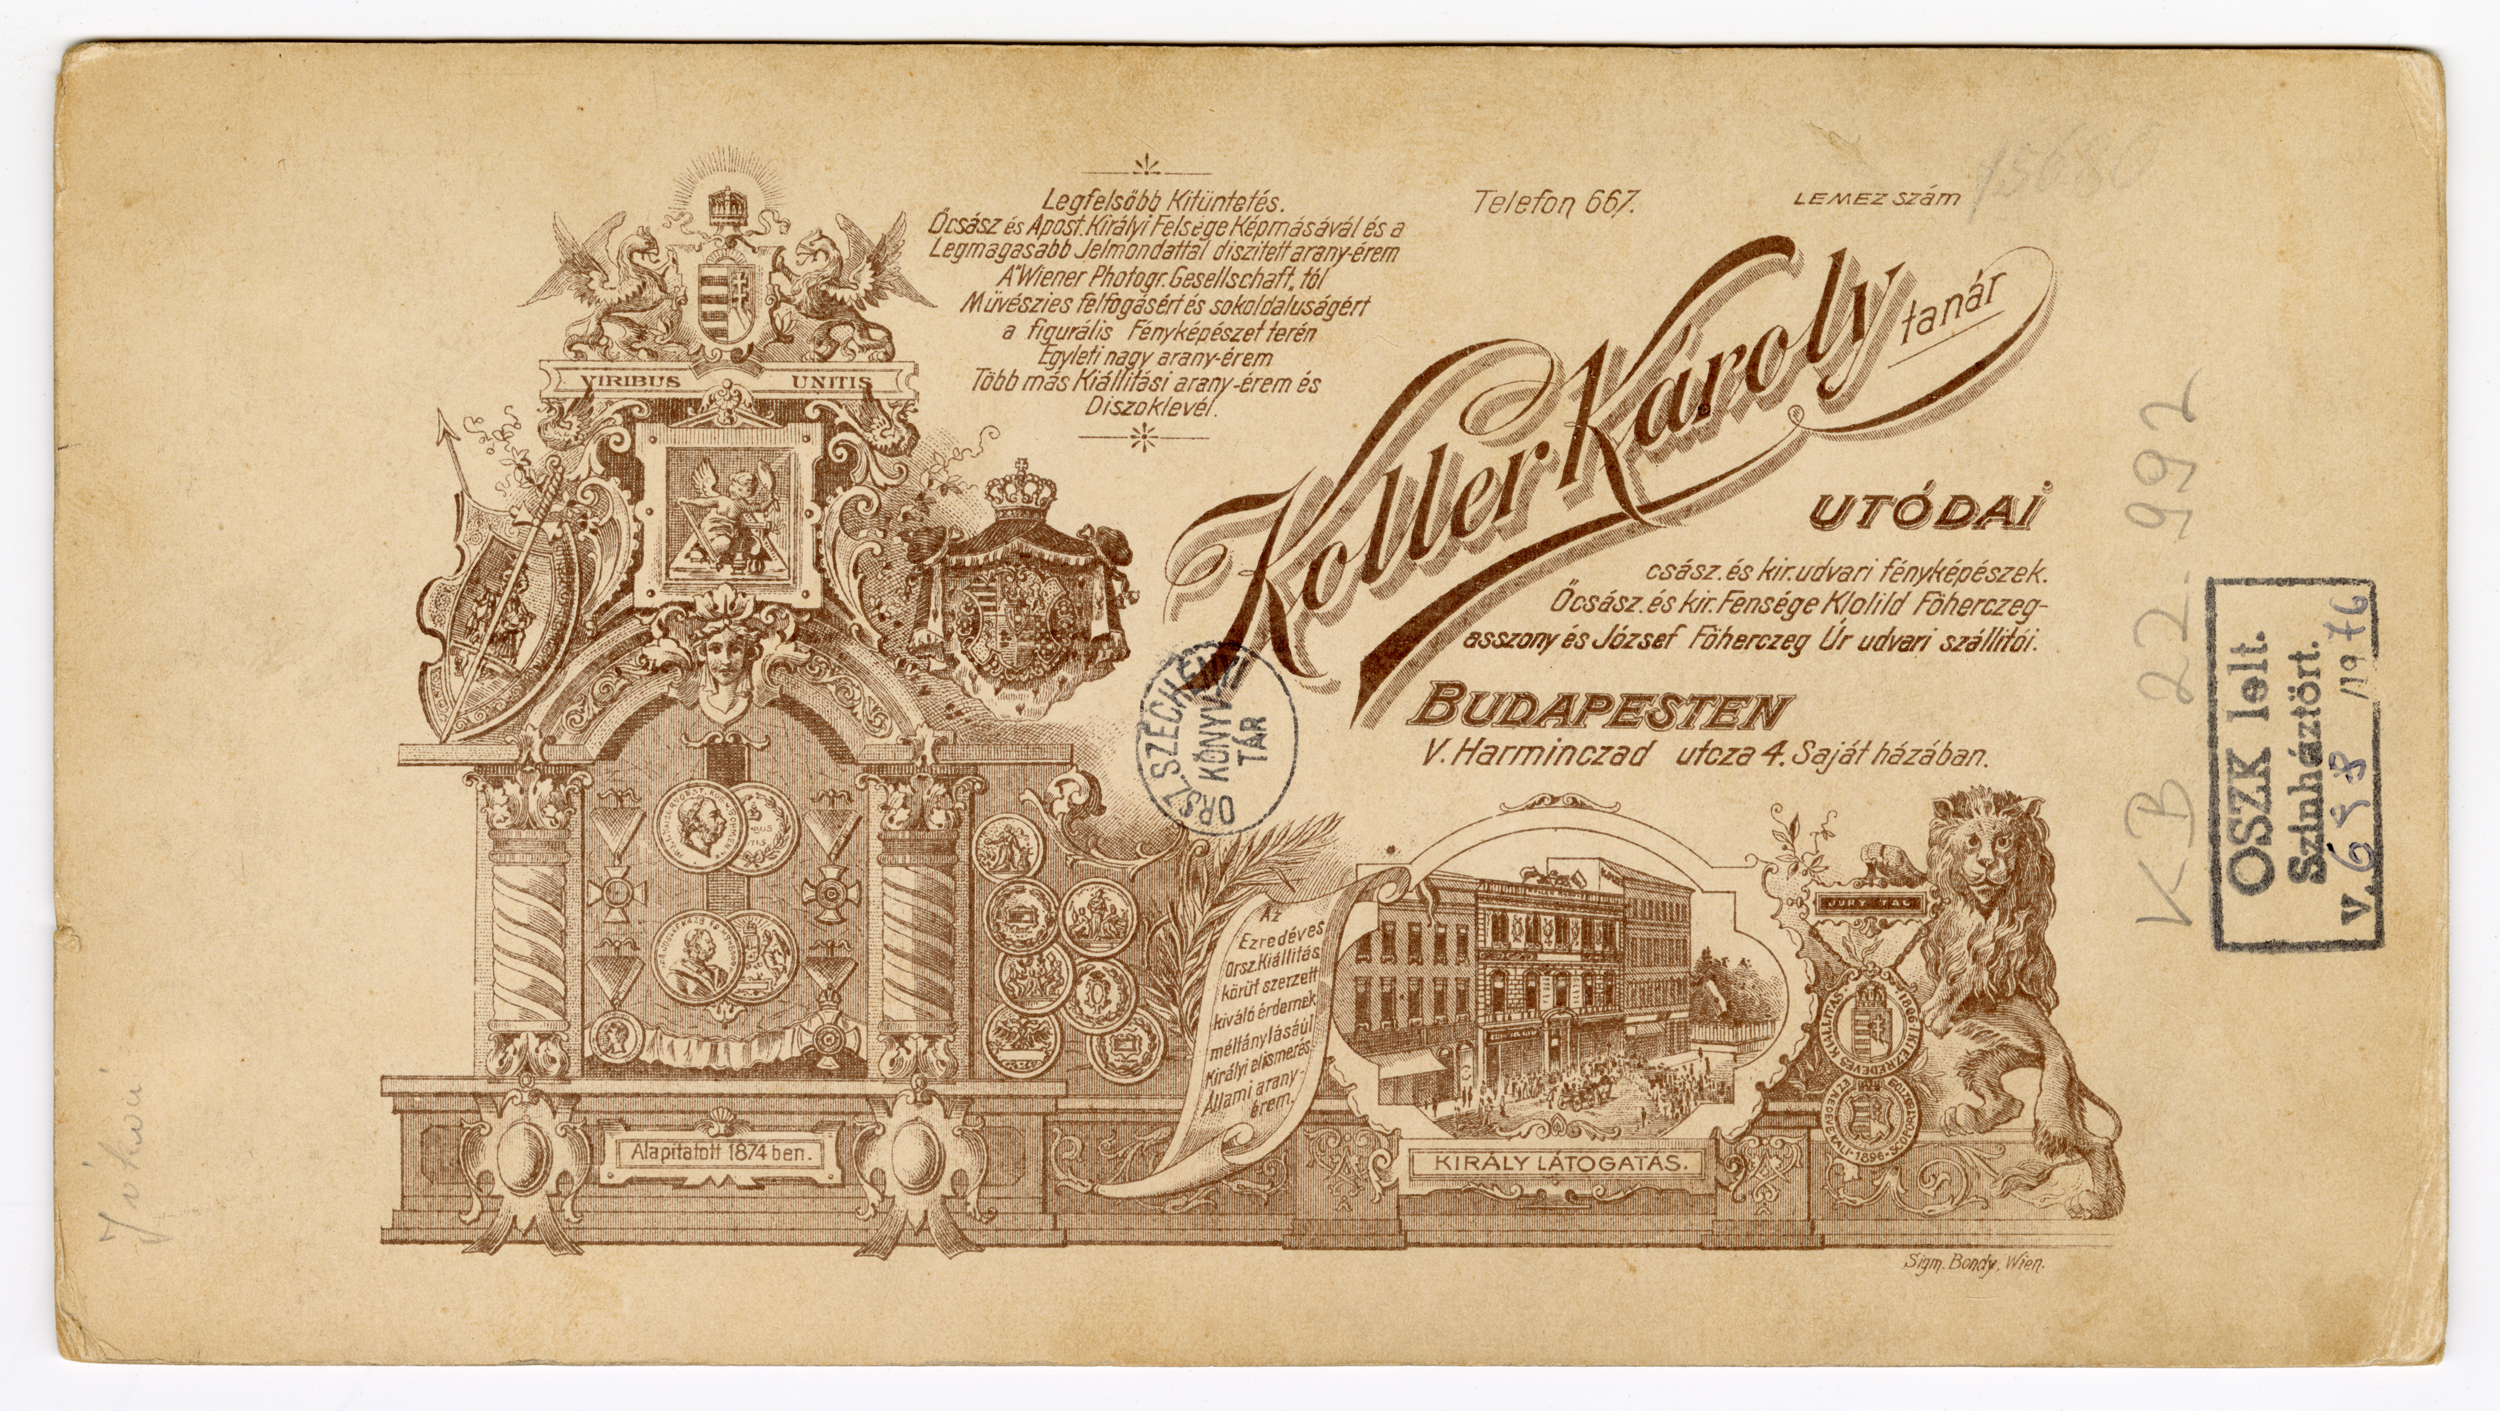 Legfelsőbb Kitüntetés.
Őcsász és Apost. Királyi Felsége Képmásával és a
Legmagasabb Jelmondattal diszitett arany-érem
A "Wiener Photogr. Gesellschaft„ tól
Müvészies felfogásért és sokoldaluságért
a figurális Fényképészet terén
Egyleti nagy arany-érem
Több más Kiállitási arany-érem és
Diszoklevél.
Telefon 667.
LEMEZ szám 15680
Koller Károly tanár
UTÓDAI
csász. és kir. udvari fényképészek.
Őcsász. és kir. Fensége Klotild Főherczeg-
asszony és József Főherczeg Úr udvari szállitói.
BUDAPESTEN
V. Harminczad utcza 4. Saját házában.
VIRIBUS UNITIS
ORSZ. SZÉCHÉNYI
KÖNYV
TÁR
Az
Ezredéves
Orsz. Kiállitás
körül szerzett
kiváló érdemek
méltánylásáúl
Királyi elismerés
Állami arany-
érem.
JURY TAG
1896 · KI EZREDÉVES KIÁLLITÁS
1896
Alapitatott 1874 ben.
KIRÁLY LÁTOGATÁS.
Sigm. Bondy, Wien.
Jókai
KB 22.992
OSZK lelt.
Szinháztört.
V. 698 /1976